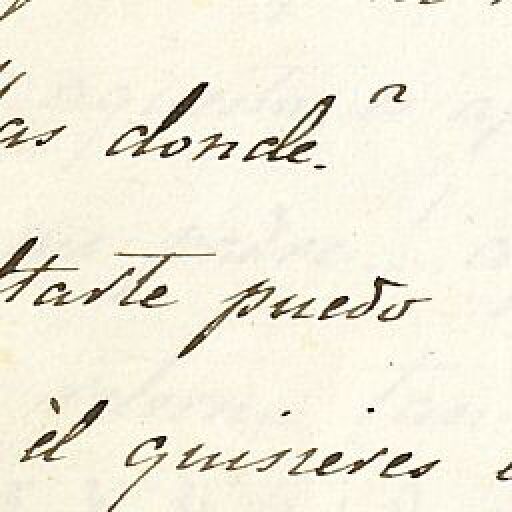 as donde.
tarte puedo
èl quisieres